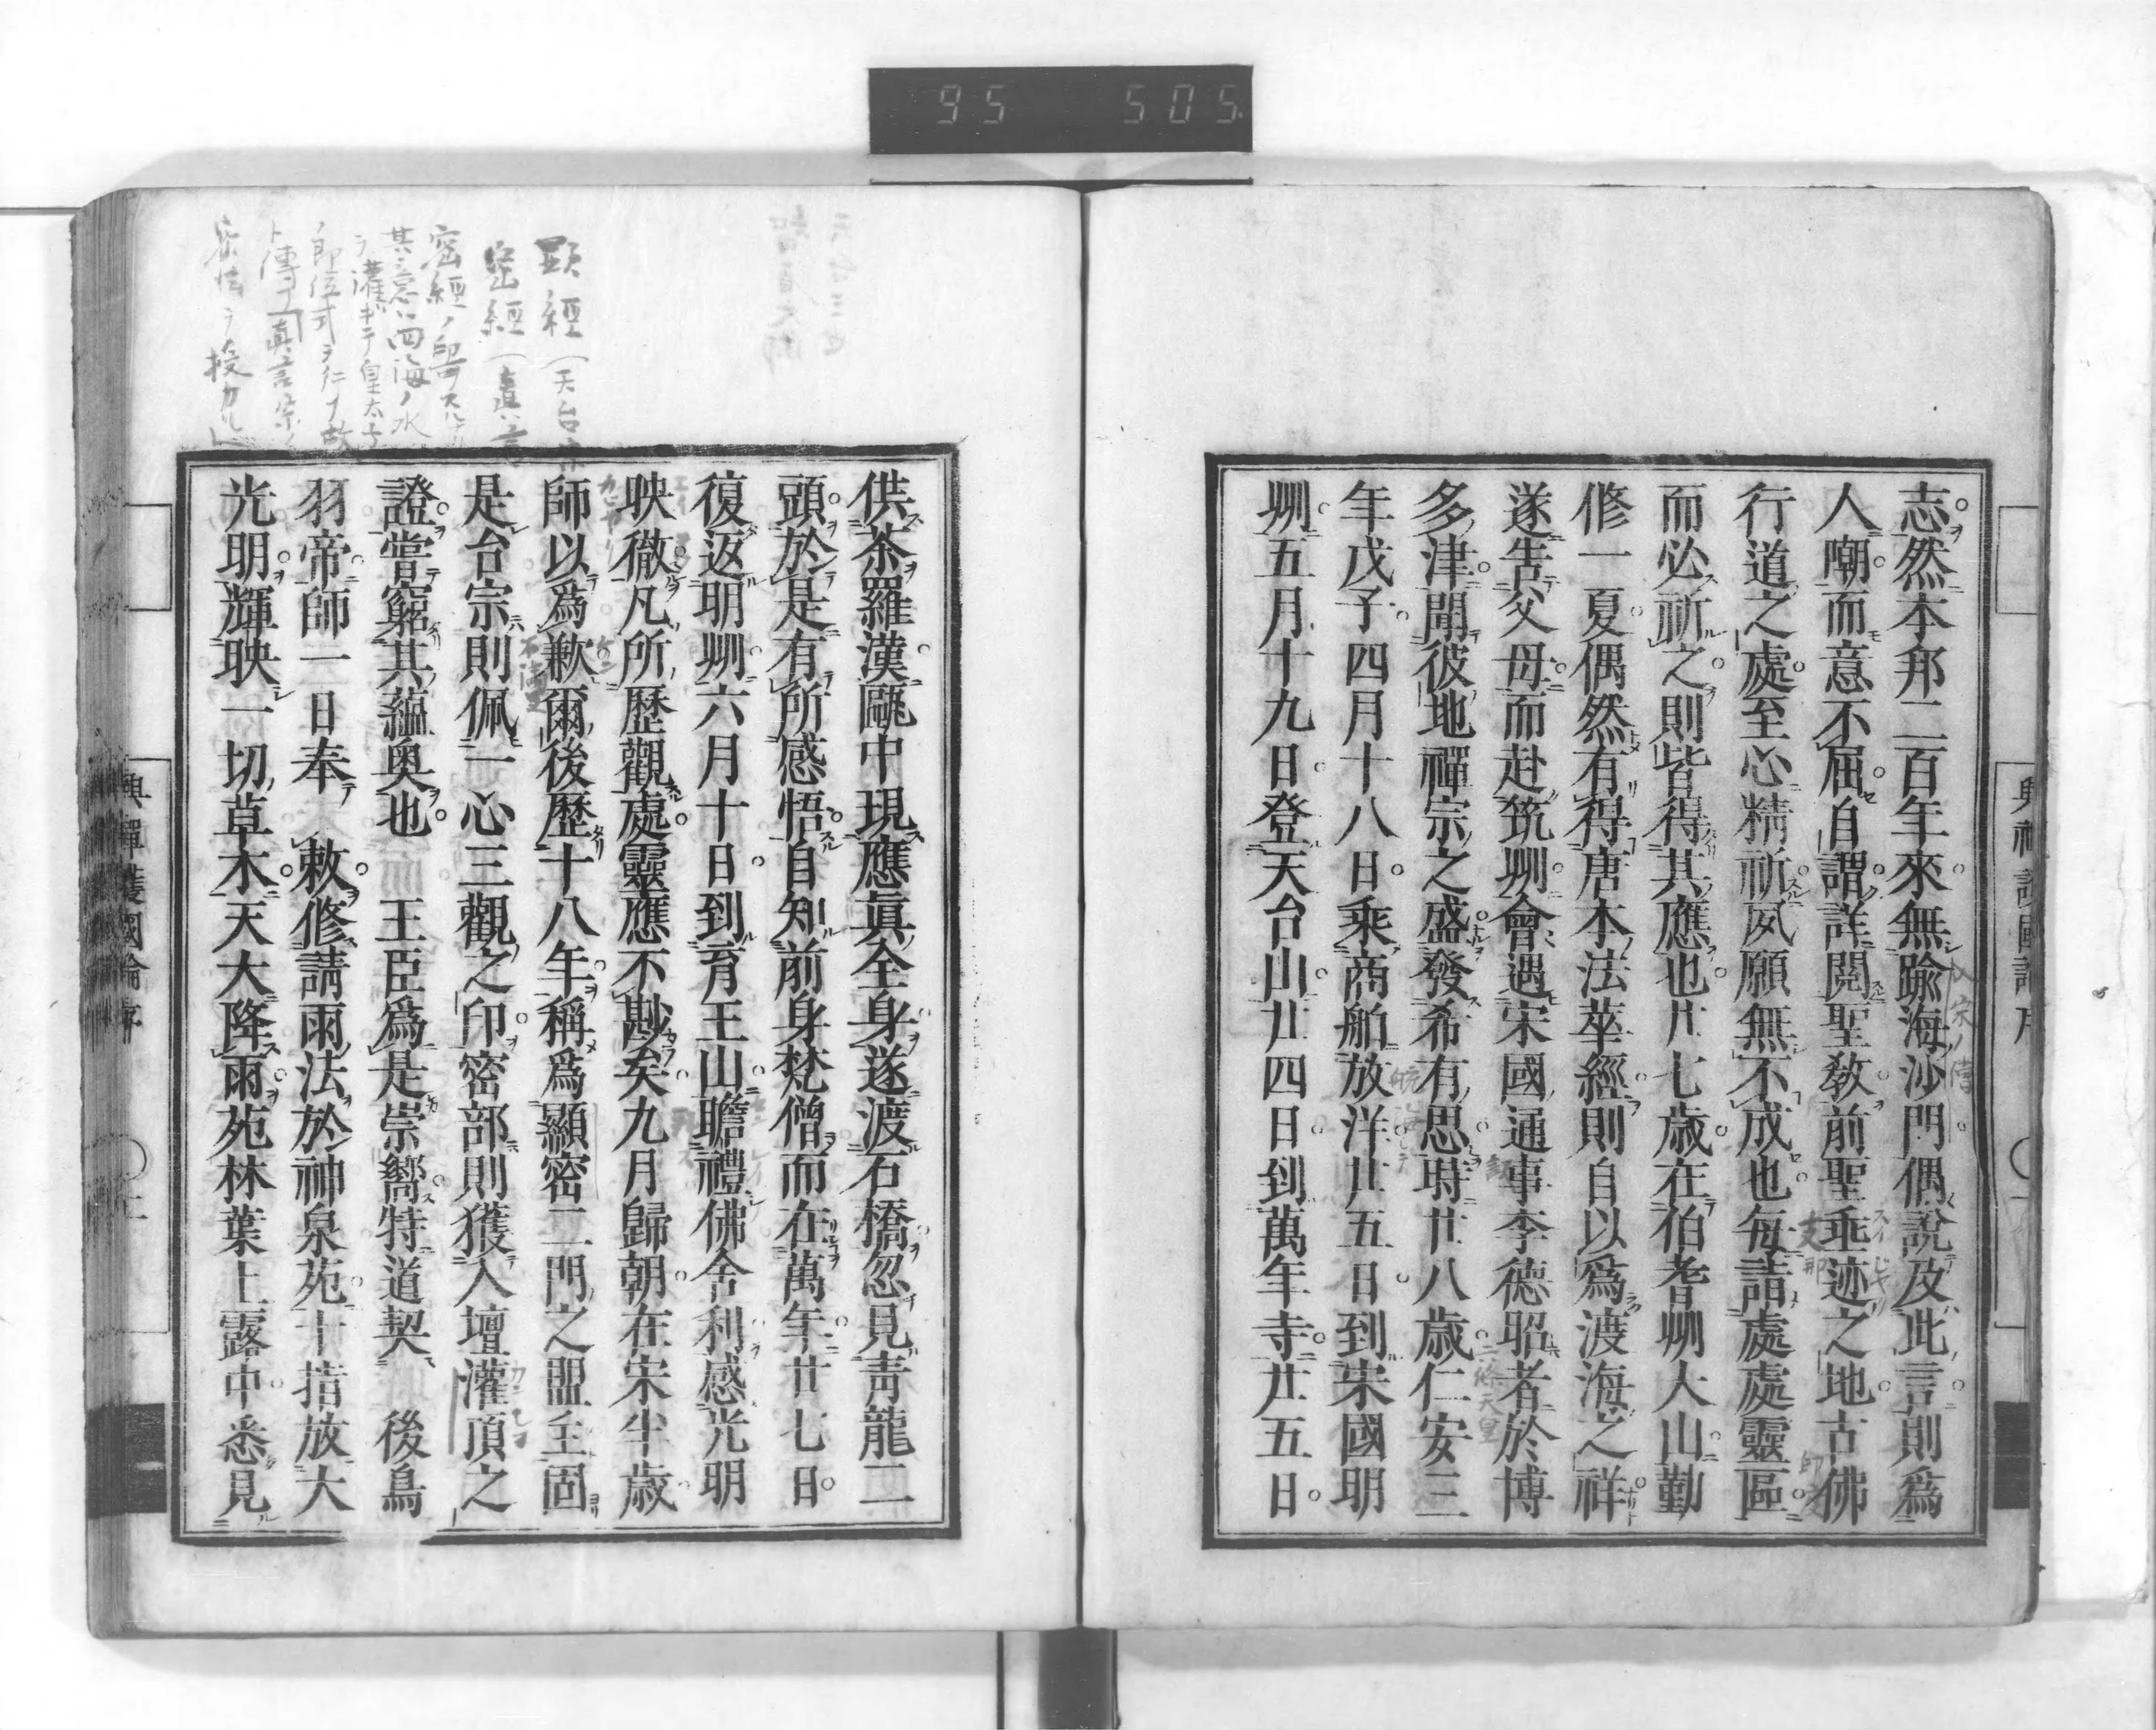 95 505
志然本邦二百年來無踰海沙門偶說及此言則爲
人嘲而意不屈自謂詳閲聖教前聖乖迹之地古佛
行道之處至心精祈夙願無不成也毎詣處處靈區
而必祈之則皆得其應也廿七歳在伯耆州大山勤
修一夏偶然有得唐本法華經則自以爲渡海之祥
遂告父母而赴筑州會遇宋國通事李德昭者於博
多津聞彼地禪宗之盛發希有思時廿八歳仁安三
年戊子四月十八日乘商舶放洋廿五日到宋國明
州五月十九日登天台山廿四日到萬年寺廿五日
供茶羅漢甌中現應眞全身遂渡石橋忽見靑龍二
頭於是有所感悟自知前身梵僧而在萬年廿七日
復返明州六月十日到育王山瞻禮佛舍利感光明
映徹凡所歷觀處靈應不尠矣九月歸朝在宋半歳
師以爲歉爾後歷十八年稱爲顯密二門之盟主固
是台宗則佩一心三觀之印密部則獲入壇灌頂之
證嘗窮其蘊奥也 王臣爲是崇嚮特道契 後鳥
羽帝師一日奉 敕修請雨法於神泉苑十指放大
光明輝映一切草木天大降雨苑林葉上露中悉見
興禪護國論序
顯經(天台
密經(眞言
四海ノ水
ヲ灌ギテ皇太子